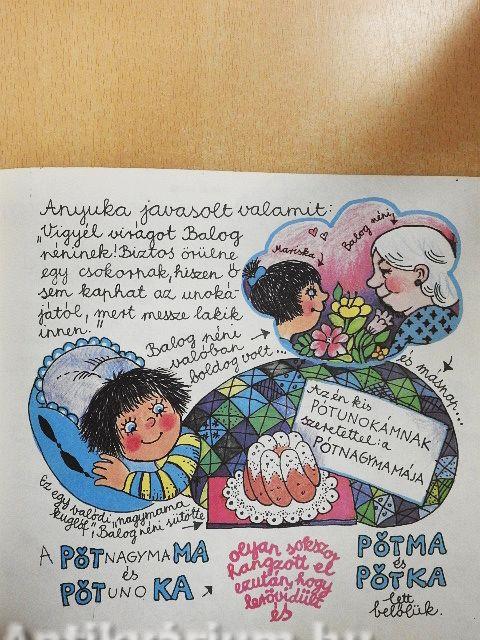 Anyuka javasolt valamit:
"Vigyél virágot Balog
néninek! Biztos örülne
egy csokornak, hiszen ő
sem kaphat az unoká-
jától, mert messze lakik
innen."
Balog néni
valóban
boldog volt...
Mariska
Balog néni
és másnap...
Az én kis
PÓTUNOKÁMNAK
szeretettel: a
PÓTNAGYMAMÁJA
Ez egy valódi "nagymama
kuglóf", Balog néni sütötte
A PÓTNAGYMAMA
és
PÓTUNOKA
olyan sokszor
hangzott el
ezután, hogy
lerövidült
és
PÓTMA
és
PÓTKA
lett
belőlük.
Antikvárium.hu